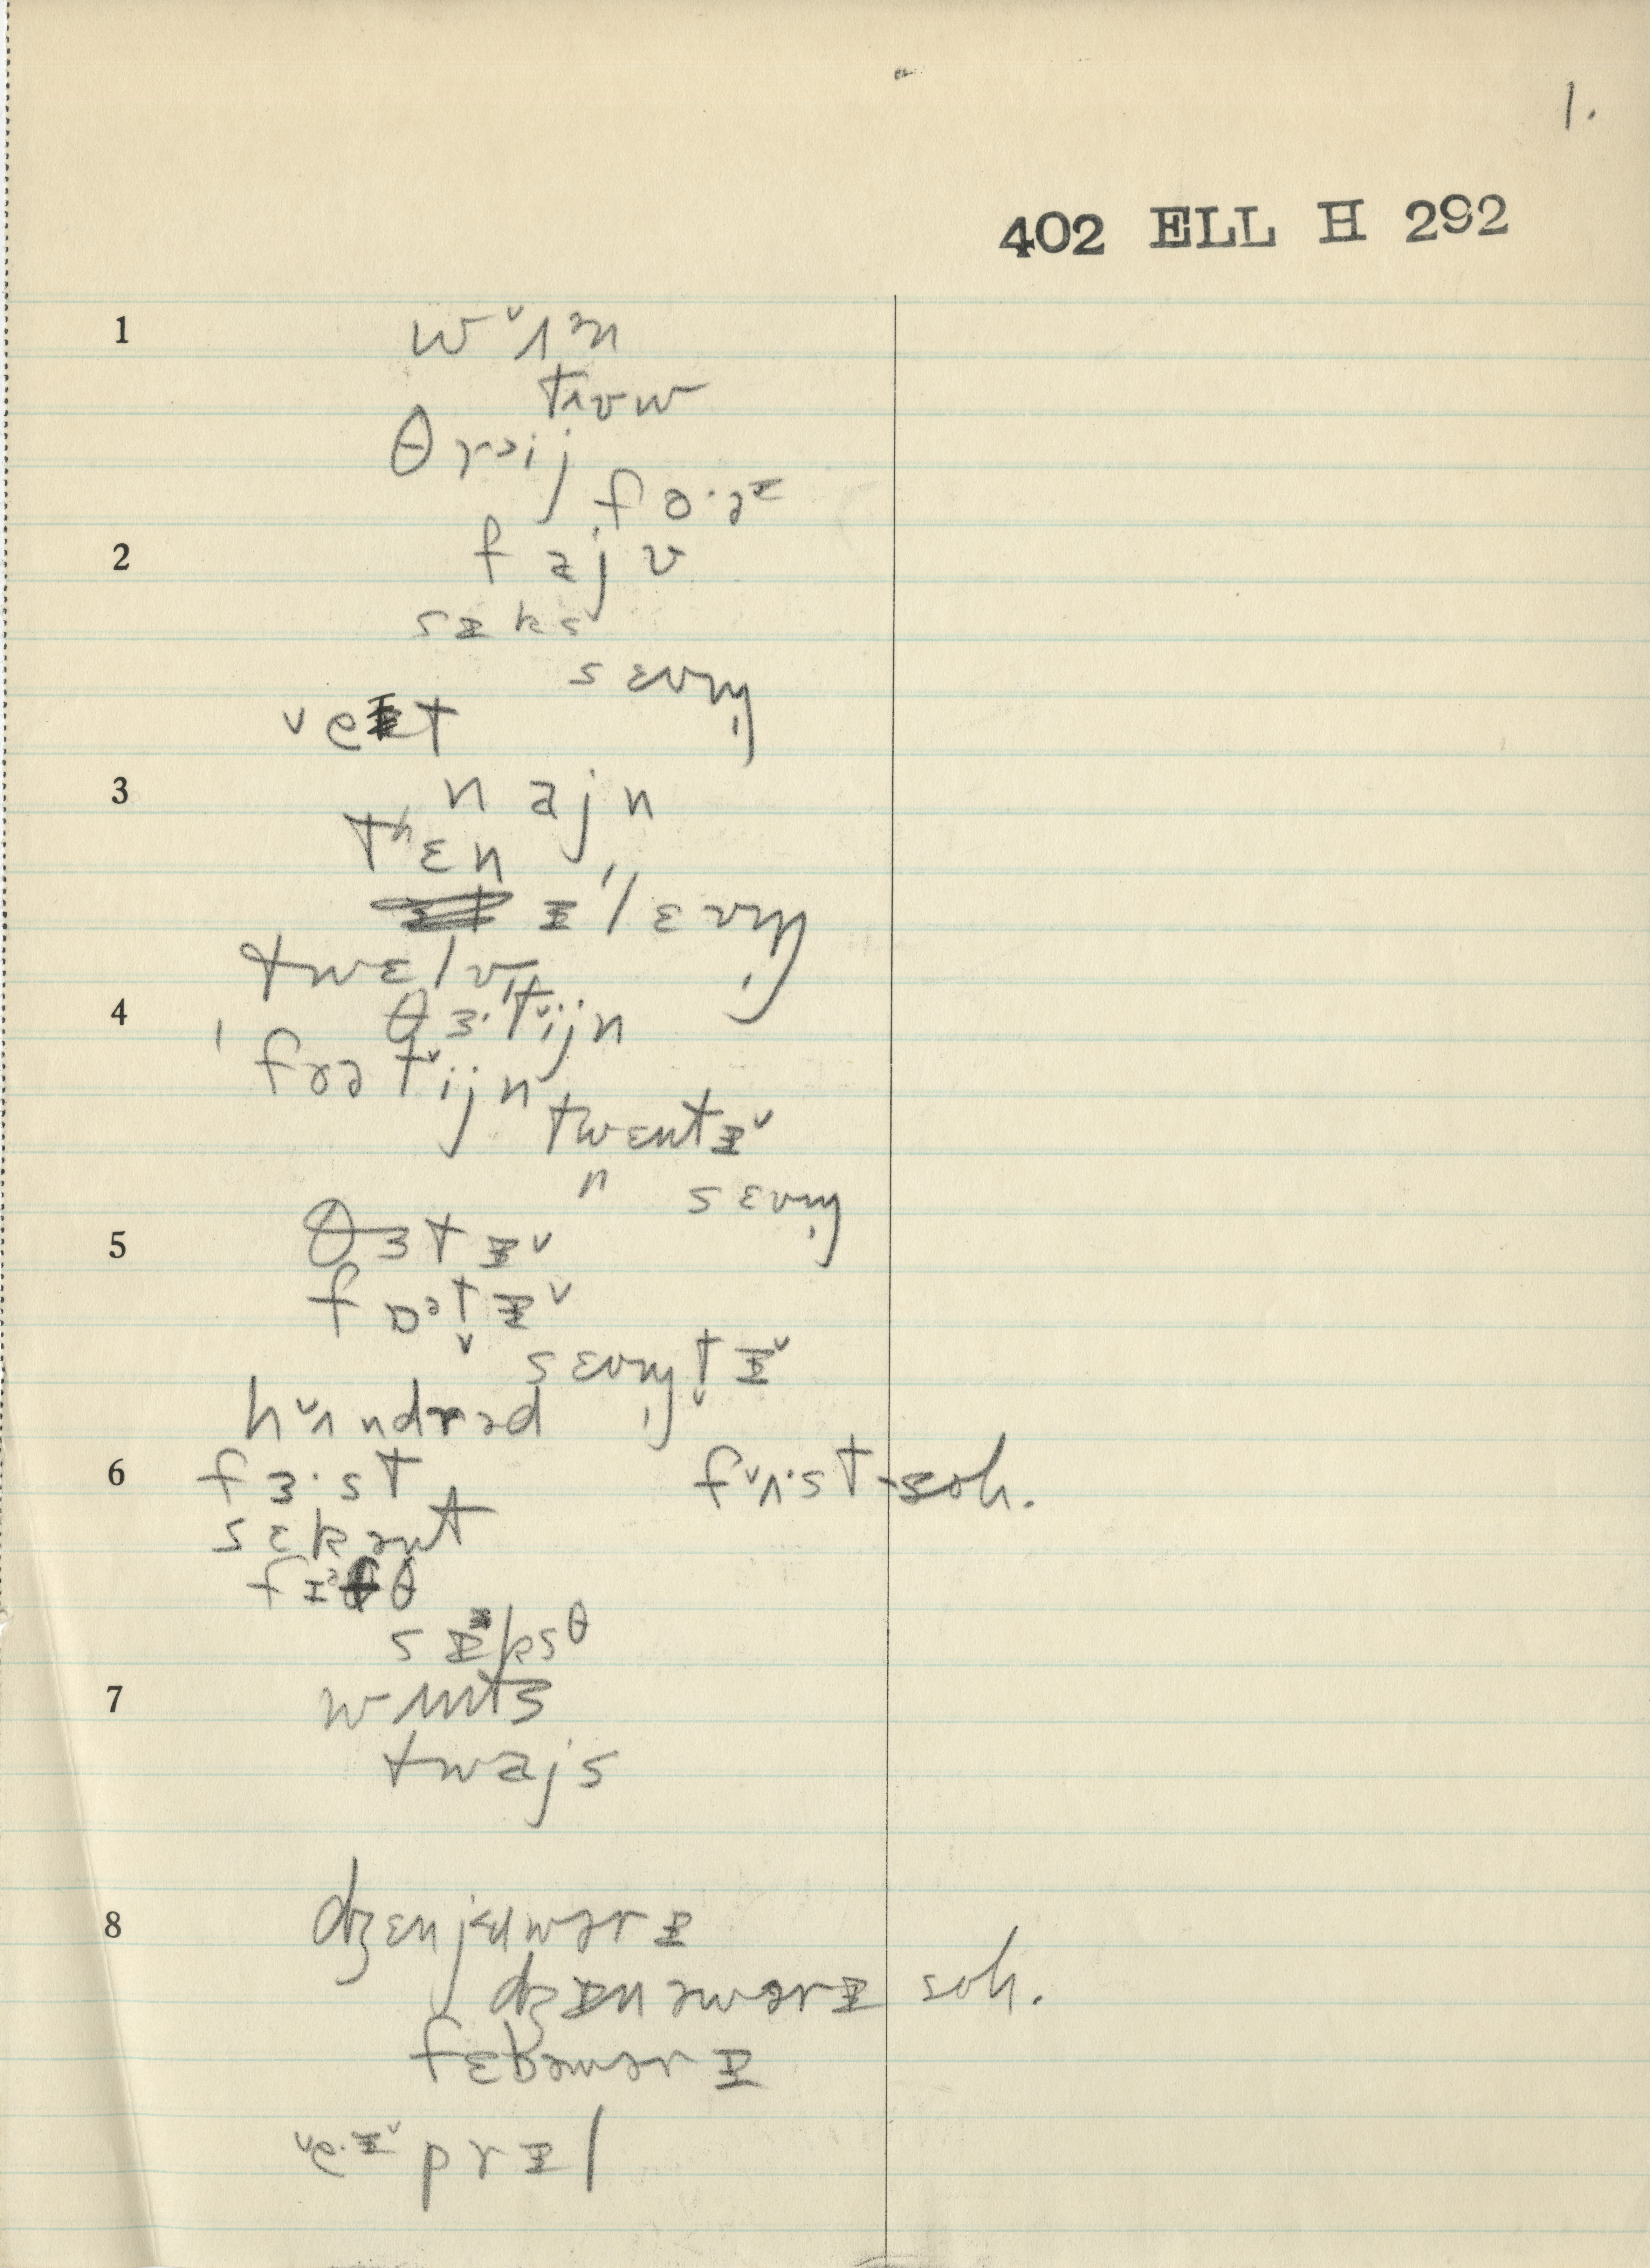 1.
402 ELL H 292
1 wˇʌᵊn
tɪʊw
θrᵊij
fo·ə^ɪ
2 fajv
sɪks
sɛvn̩
ˇeɪt
3 najn
tʰɛn
ɪˈlɛvn̩
twɛlv
4 θɜ·ˈtˇijn
ˈfɔətˇijn
twɛntɪˇ
n sɛvn̩
5 θɜtɪˇ
fɒᵊt̬ɪˇ
sɛvn̩t̬ɪˇ
hˇʌndrəd
6 fɜ·st fˇʌ·st - soh.
sɛkənt
fɪᵊθ
sɪᵊksθ
7 wʌnts
twajs
8 dʒɛnjɛuwərɪ
dʒɪnəwərɪ soh.
fɛbəwərɪ
ˇe·ɪˇprɪl